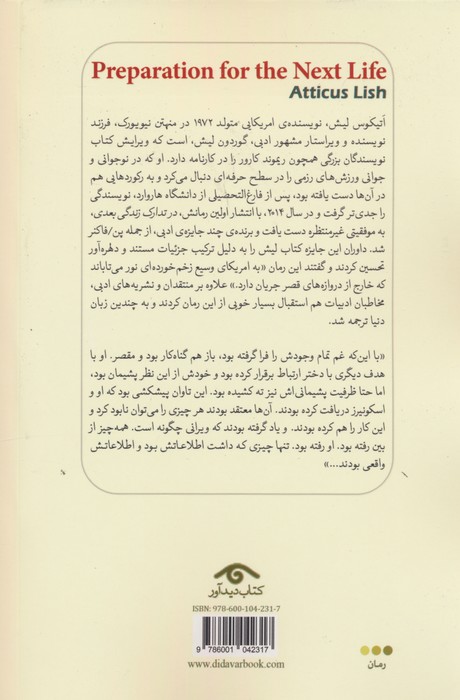 Preparation for the Next Life
Atticus Lish
آتیکوس لیش، نویسنده‌ی امریکایی متولد ۱۹۷۲ در منهتن نیویورک، فرزند
نویسنده و ویراستار مشهور ادبی، گوردون لیش، است که ویرایش کتاب
نویسندگان بزرگی همچون ریموند کارور را در کارنامه دارد. او که در نوجوانی و
جوانی ورزش‌های رزمی را در سطح حرفه‌ای دنبال می‌کرد و به رکوردهایی هم
در آن‌ها دست یافته بود، پس از فارغ‌التحصیلی از دانشگاه هاروارد، نویسندگی را
جدی‌تر گرفت و در سال ۲۰۱۴، با انتشار اولین رمانش، در تدارک زندگی بعدی،
به موفقیتی غیرمنتظره دست یافت و برنده‌ی چند جایزه‌ی ادبی، از جمله پن/فاکنر
شد. داوران این جایزه کتاب لیش را به دلیل ترکیب جزئیات مستند و دلهره‌آور
تحسین کردند و گفتند این رمان «به امریکای وسیع زخم‌خورده‌ای نور می‌تاباند
که خارج از دروازه‌های قصر جریان دارد.» علاوه بر منتقدان و نشریه‌های ادبی،
مخاطبان ادبیات هم استقبال بسیار خوبی از این رمان کردند و به چندین زبان
دنیا ترجمه شد.
«با این‌که غم تمام وجودش را فرا گرفته بود، باز هم گناه‌کار بود و مقصر. او با
هدف دیگری با دختر ارتباط برقرار کرده بود و خودش از این نظر پشیمان بود،
اما حتا ظرفیت پشیمانی‌اش نیز ته کشیده بود. این تاوان پیشکشی بود که او و
اسکونیرز دریافت کرده بودند. آن‌ها معتقد بودند هر چیزی را می‌توان نابود کرد و
این کار را هم کرده بودند. و یاد گرفته بودند که ویرانی چگونه است. همه‌چیز از
بین رفته بود. او رفته بود. تنها چیزی که داشت اطلاعاتش بود و اطلاعاتش
واقعی بودند...»
کتاب دیدآور
ISBN: 978-600-104-231-7
9 786001 042317
www.didavarbook.com
رمان